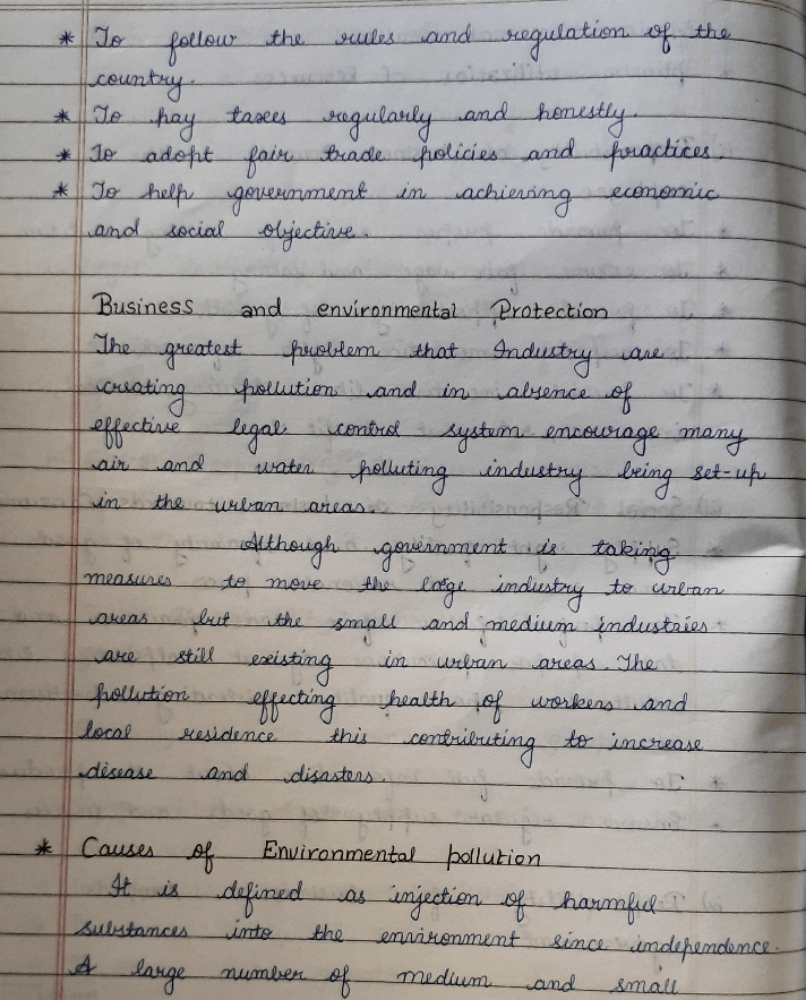 * To follow the rules and regulation of the
country.
* To pay taxes regularly and honestly.
* To adopt fair trade policies and practices.
* To help government in achieving economic
and social objective.
Business and environmental Protection
The greatest problem that Industry are
creating pollution and in absence of
effective legal control system encourage many
air and water polluting industry being set-up
in the urban areas.
Although government is taking
measures to move the large industry to urban
areas but the small and medium industries
are still existing in urban areas. The
pollution effecting health of workers and
local residence this contributing to increase
disease and disasters.
* Causes of Environmental pollution
It is defined as injection of harmful
substances into the environment since independence.
A large number of medium and small